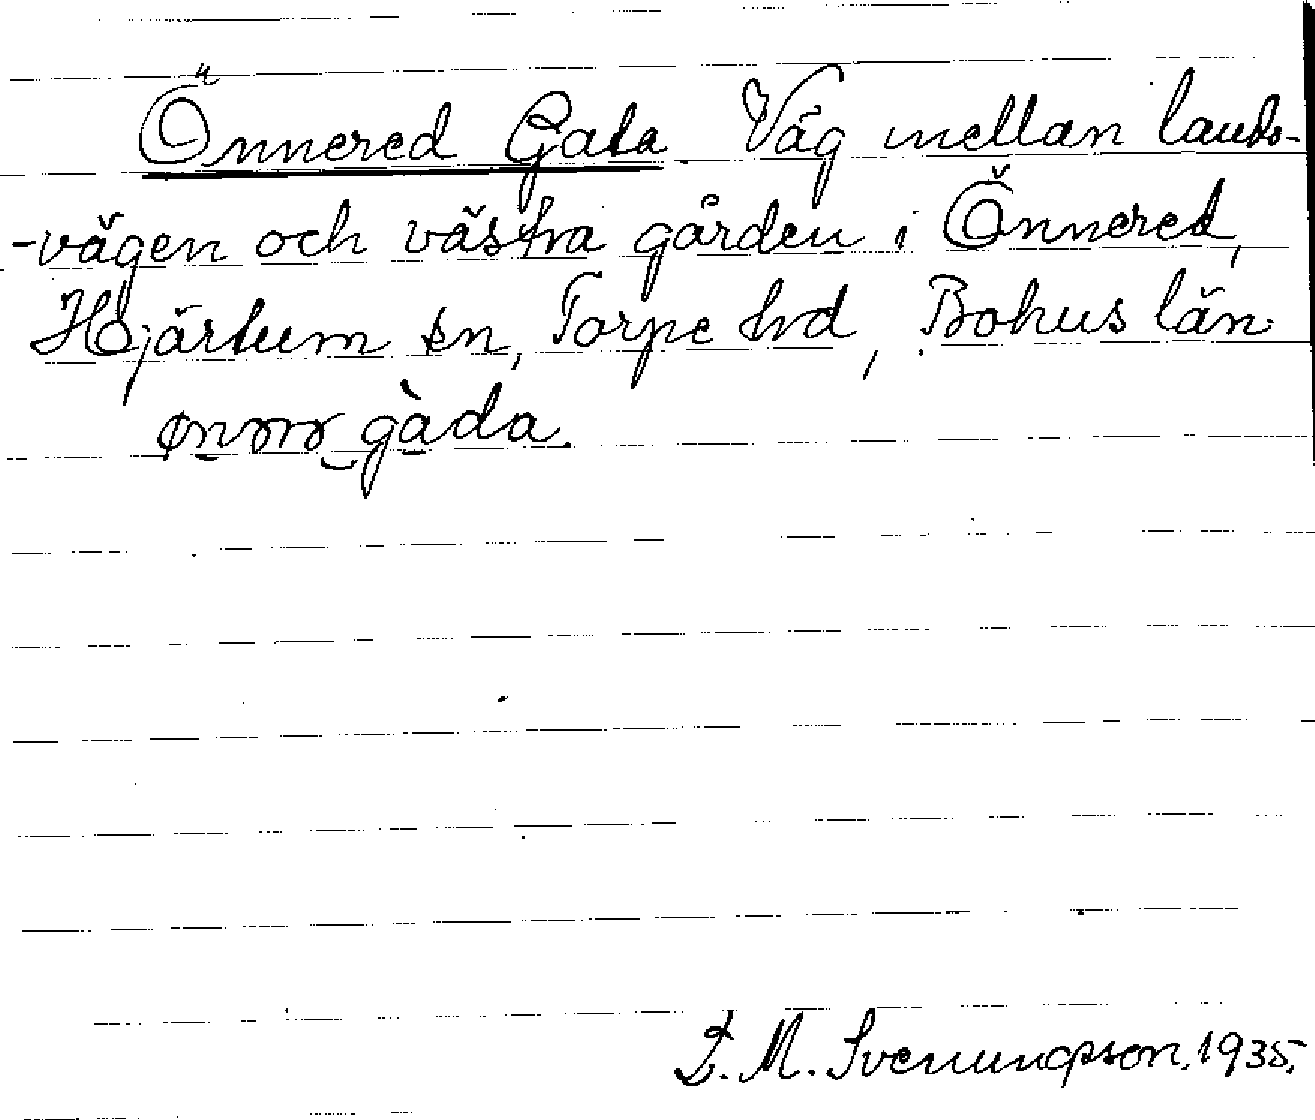 Önnered Gata Väg mellan lands-
-vägen och västra gården i Önnered,
Hjärtum sn, Torpe hd, Bohus län.
gàda.
L. M. Svenungsson, 1935.